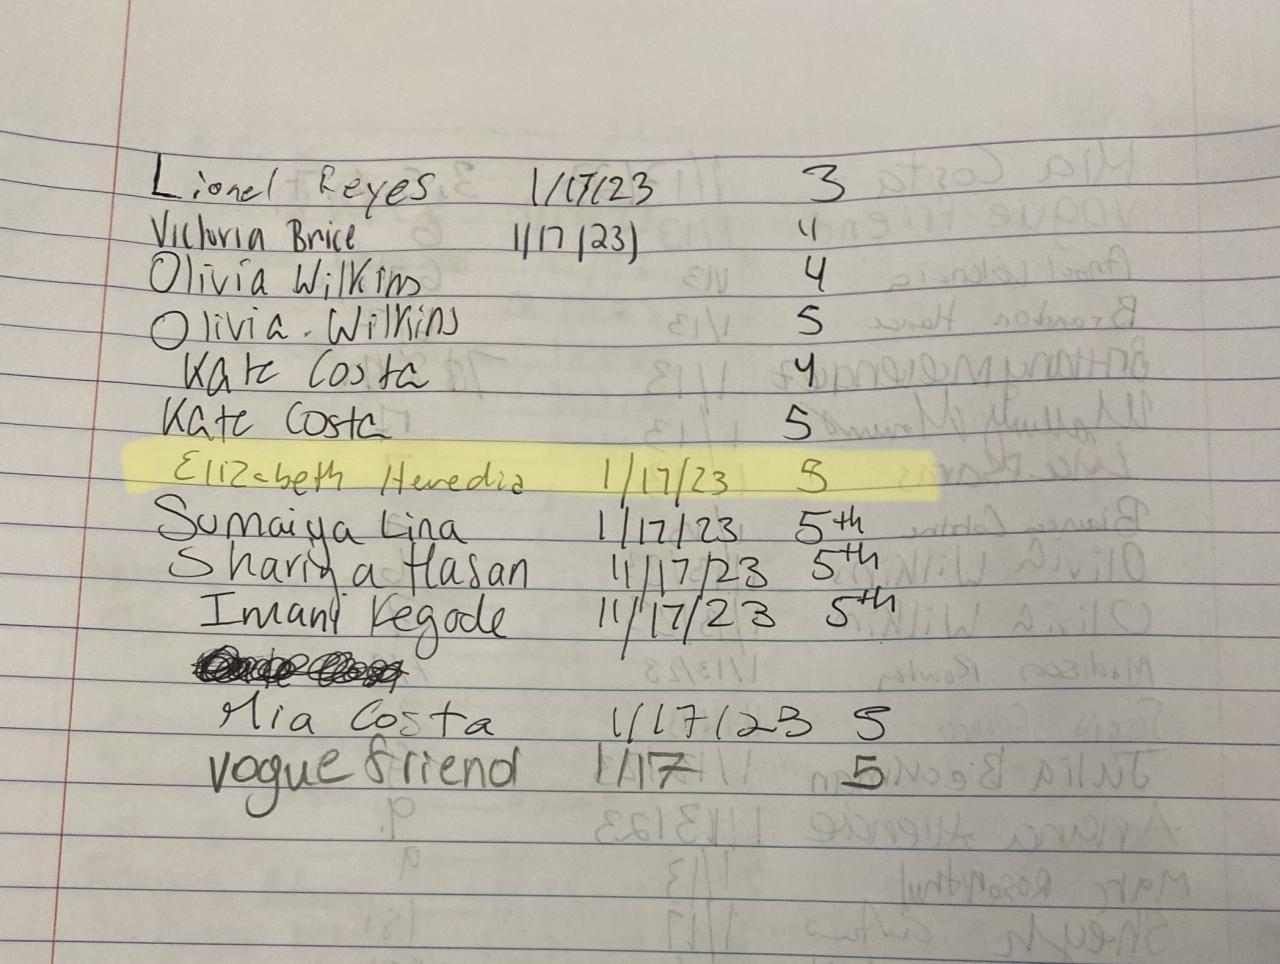 Lionel Reyes 1/17/23 3
Victoria Brice 1/17/23) 4
Olivia Wilkins 4
Olivia. Wilkins 5
Kate Costa 4
Kate Costa 5
Elizabeth Heredia 1/17/23 5
Sumaiya Lina 1/17/23 5th
Shariya Hasan 11/17/23 5th
Imani Kegode 11/17/23 5th
Mia Costa 1/17/23 5
vogue friend 1/17 5